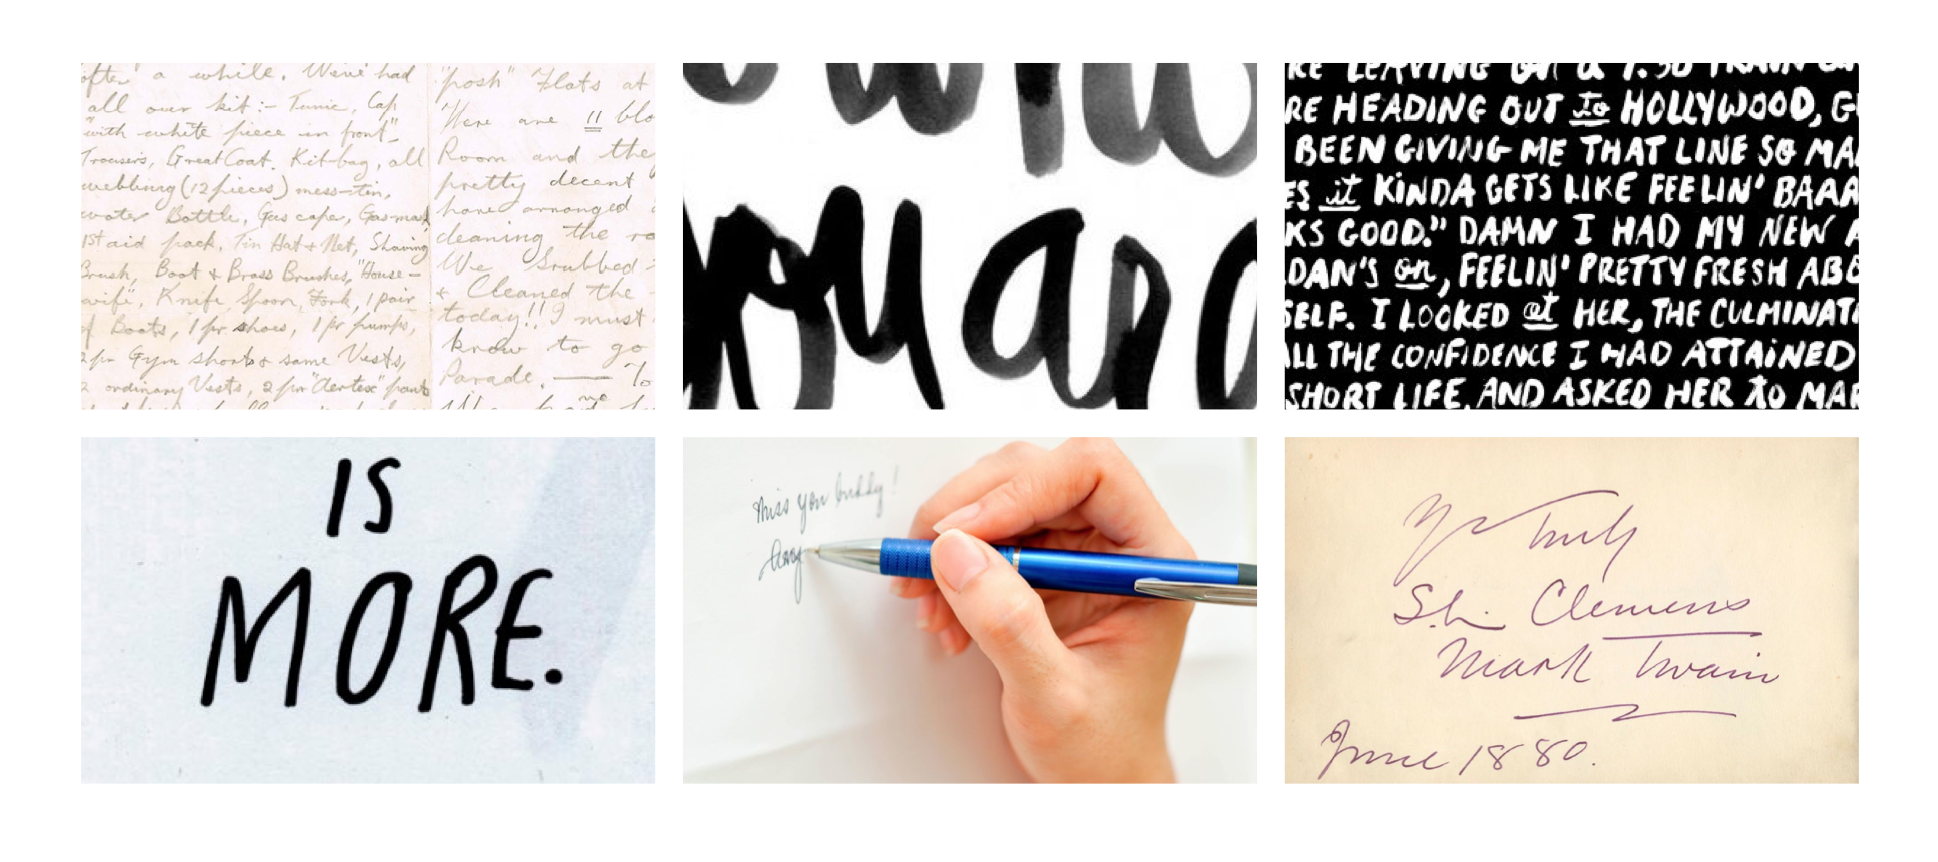 after" a while. We've had
all our kit:- Tunic, Cap
"with white piece in front"
Trousers, Great Coat. Kit-bag, all
webbing (12 pieces) mess-tin,
water Bottle, Gas cape, Gasmask
1st aid pack, Tin Hat & Net, Shaving
Brush, Boot & Brass Brushes, "House-
wife", Knife Spoon, Fork, 1 pair
of Boots, 1 pr shoes, 1 pr pumps,
2 pr Gym shorts & same Vests,
2 ordinary Vests, 2 pr "Aertex" pants
"posh" Flats at
Here are 11 blo
Room and the
pretty decent
have arranged
cleaning the ro
We Srubbed
& Cleaned the
today!! I must
know to go
Parade. — To
you are
RE LEAVING ON A 7:30 TRAIN
RE HEADING OUT to HOLLYWOOD, G
BEEN GIVING ME THAT LINE SO MA
ES it KINDA GETS LIKE FEELIN' BAAA
KS GOOD." DAMN I HAD MY NEW
DAN'S on, FEELIN' PRETTY FRESH ABO
SELF. I LOOKED at HER, THE CULMINATI
ALL THE CONFIDENCE I HAD ATTAINED
SHORT LIFE, AND ASKED HER TO MAR
IS
MORE.
Miss you buddy!
Amy
Yrs Truly
S.L. Clemens
Mark Twain
June 1880.